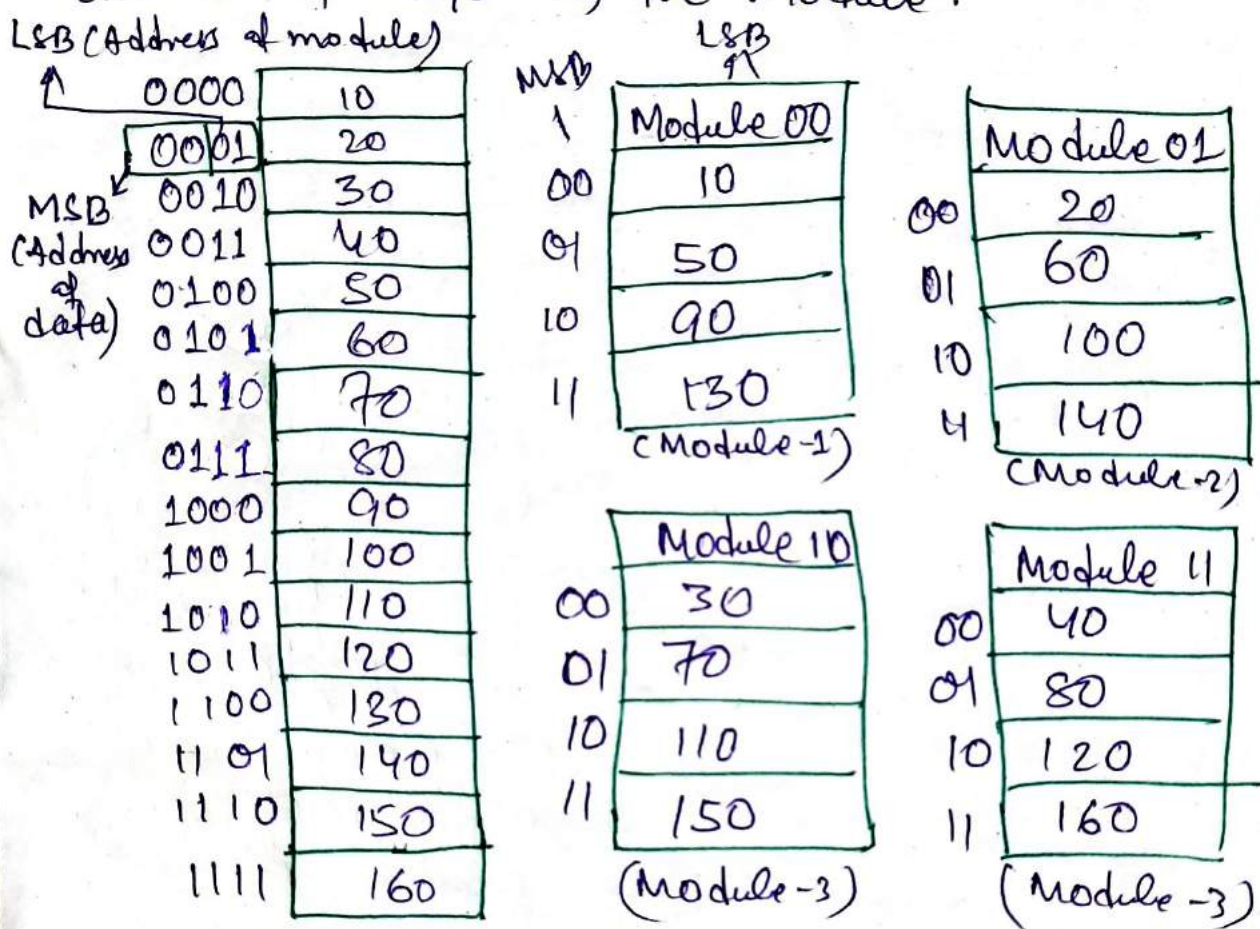 Module.
LSB (Address of module)
0000 10
0001 20
0010 30
0011 40
0100 50
0101 60
0110 70
0111 80
1000 90
1001 100
1010 110
1011 120
1100 130
1101 140
1110 150
1111 160
MSB
(Address
of
data)
MSB LSB
Module 00
00 10
01 50
10 90
11 130
(Module-1)
Module 01
00 20
01 60
10 100
11 140
(Module-2)
Module 10
00 30
01 70
10 110
11 150
(Module-3)
Module 11
00 40
01 80
10 120
11 160
(Module-3)